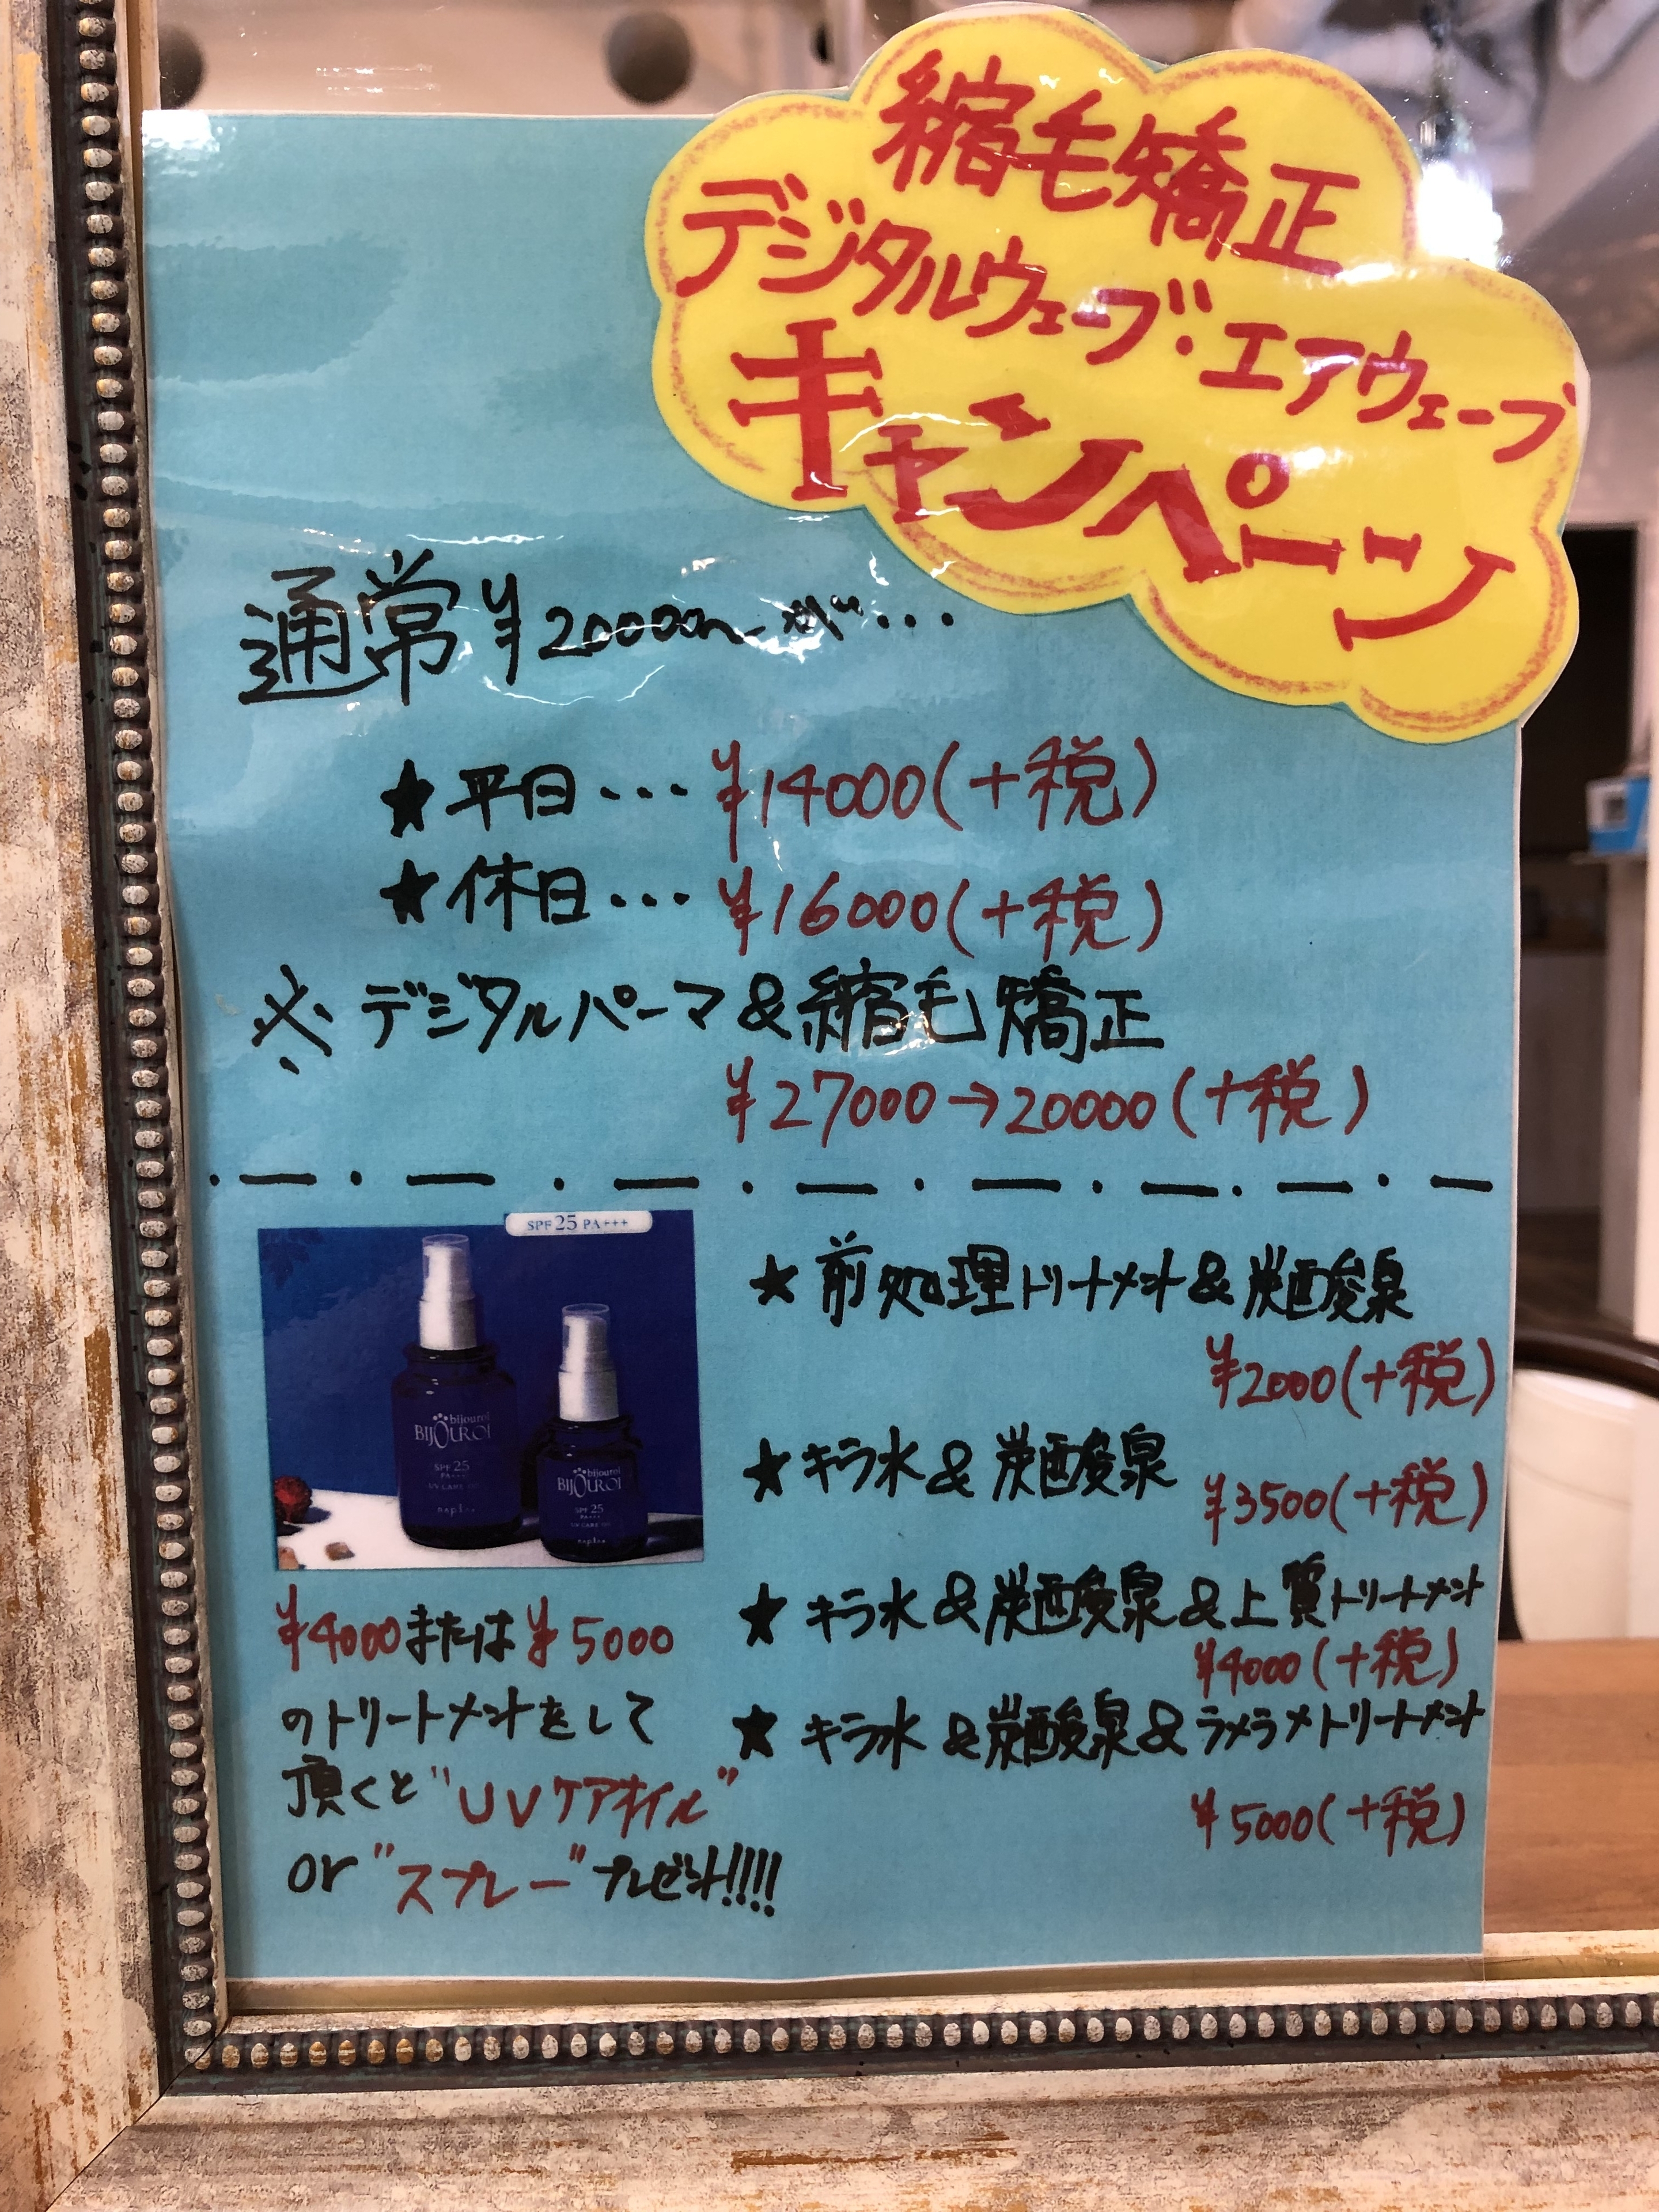 縮毛矯正
デジタルウェーブ・エアウェーブ
キャンペーン
通常¥20000〜が・・・
★平日・・・¥14000(+税)
★休日・・・¥16000(+税)
※デジタルパーマ&縮毛矯正
¥27000→20000(+税)
SPF25 PA+++
bijouroi
BIJOUROI
SPF 25
PA+++
UV CARE
napla
bijouroi
BIJOUROI
SPF 25
PA+++
UV CARE
napla
¥4000または¥5000
のトリートメントをして
頂くと"UVケアオイル"
or"スプレー"プレゼント!!!!
★前処理トリートメント&炭酸泉
¥2000(+税)
★キラ水&炭酸泉
¥3500(+税)
★キラ水&炭酸泉&上質トリートメント
¥4000(+税)
★キラ水&炭酸泉&ラメラメトリートメント
¥5000(+税)